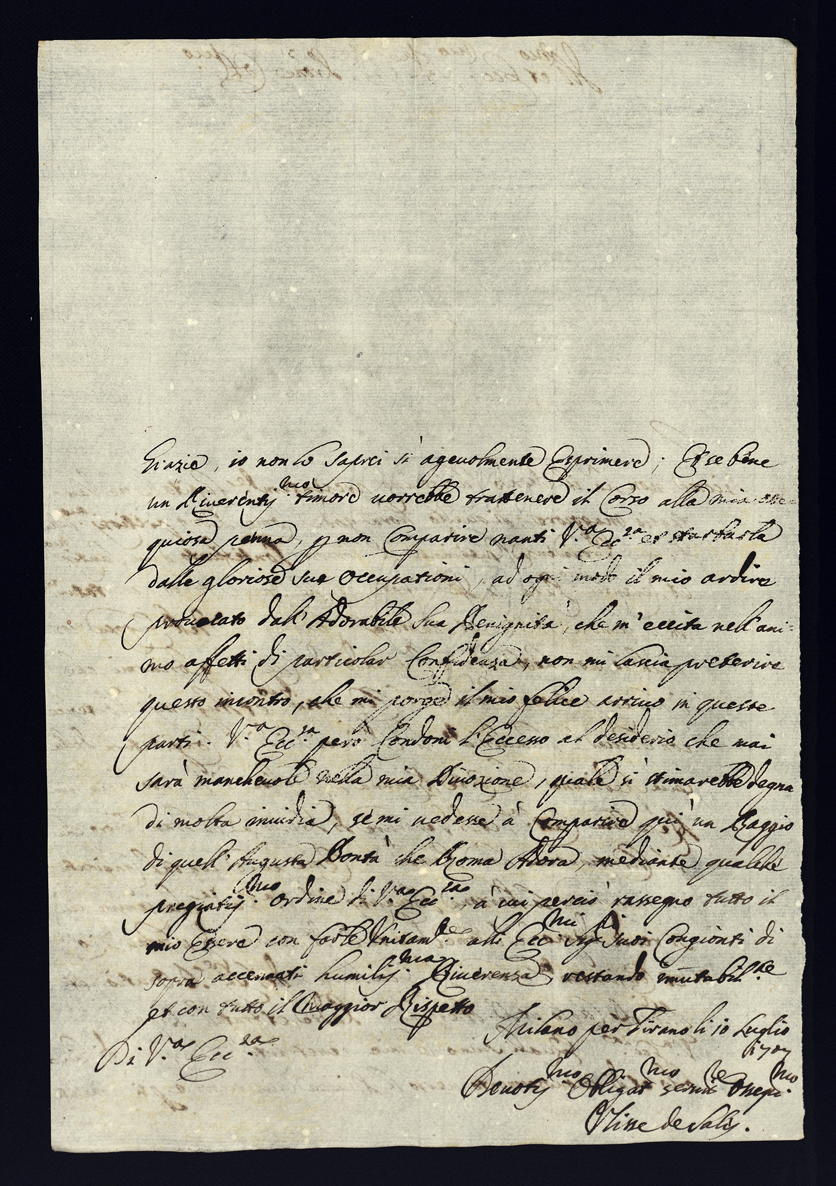 Grazie, io non lo saprei sì ageuolmente Esprimere; Et se bene
un Riuerentis.mo timore uorrebbe trattenere il Corso alla mia osse=
quiosa penna, p non Comparire nanti V.a Ecc.za et starbarla
dalle gloriose sue Occupationi, ad ogni modo il mio ardire
prouocato dall' Adorabile Sua Benignità, che m'eccita nell'ani=
mo affetti di particolar Confidenza, non mi lascia preterire
questo incontro, che mi porge il mio felice arriuo in queste
parti. V.a Ecc.za però Condoni l'Eccesso al desiderio che mai
sarà mancheuole nella mia Diuozione, quale si stimarebbe degna
di molta inuidia, se mi uedesse à Comparire quì un Raggio
di quell' Augusta Bontà che Roma Adora, mediante qualche
pregiatis.mo Ordine di V.a Ecc.za, à cui perciò rassegno tutto il
mio Essere con farle Vnitam.te alli Ecc.mi Sig.ri Suoi Congionti di
sopra accennati humilis.ma Riuerenza restando imutabil.te
et con tutto il Maggior Rispetto
Milano per Tirano li 10 Luglio
1707
Di V.a Ecc.za
Deuotis.mo Obligat.mo seruit.re Osseq.mo
Vlisse de Salis.